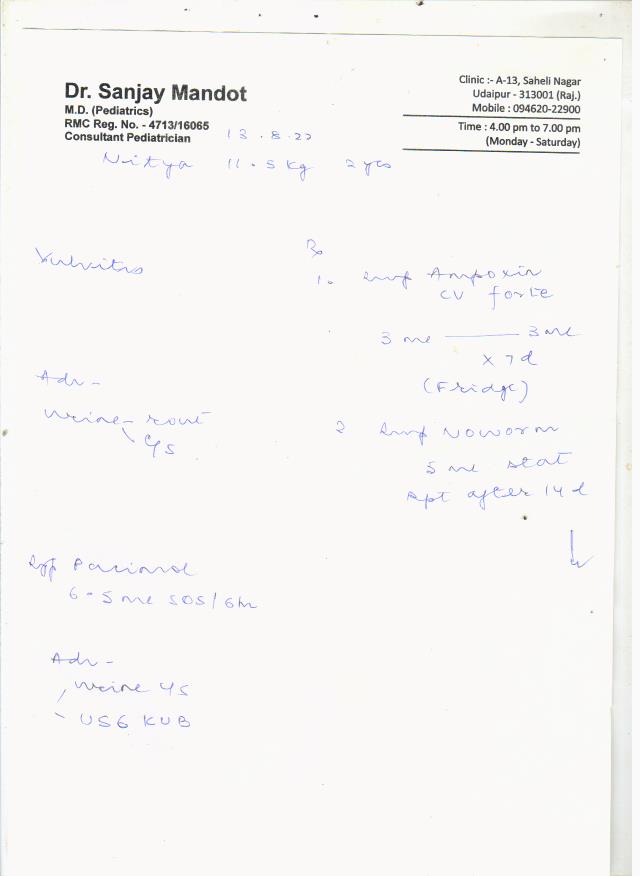 Dr. Sanjay Mandot
M.D. (Pediatrics)
RMC Reg. No. - 4713/16065
Consultant Pediatrician
Clinic :- A-13, Saheli Nagar
Udaipur - 313001 (Raj.)
Mobile : 094620-22900
Time : 4.00 pm to 7.00 pm
(Monday - Saturday)
13.8.22
Nitya 11.5 kg 2 yrs
Vulvitis
Adv -
Urine - rout
c/s
Rx
1. Syp Ampoxin
CV forte
3 ml —— 3 ml
x 7 d
(Fridge)
2 Syp Noworm
5 ml stat
Rpt after 14 d
Syp Pacimol
6.5 ml SOS/6hr
Adv -
Urine c/s
USG KUB